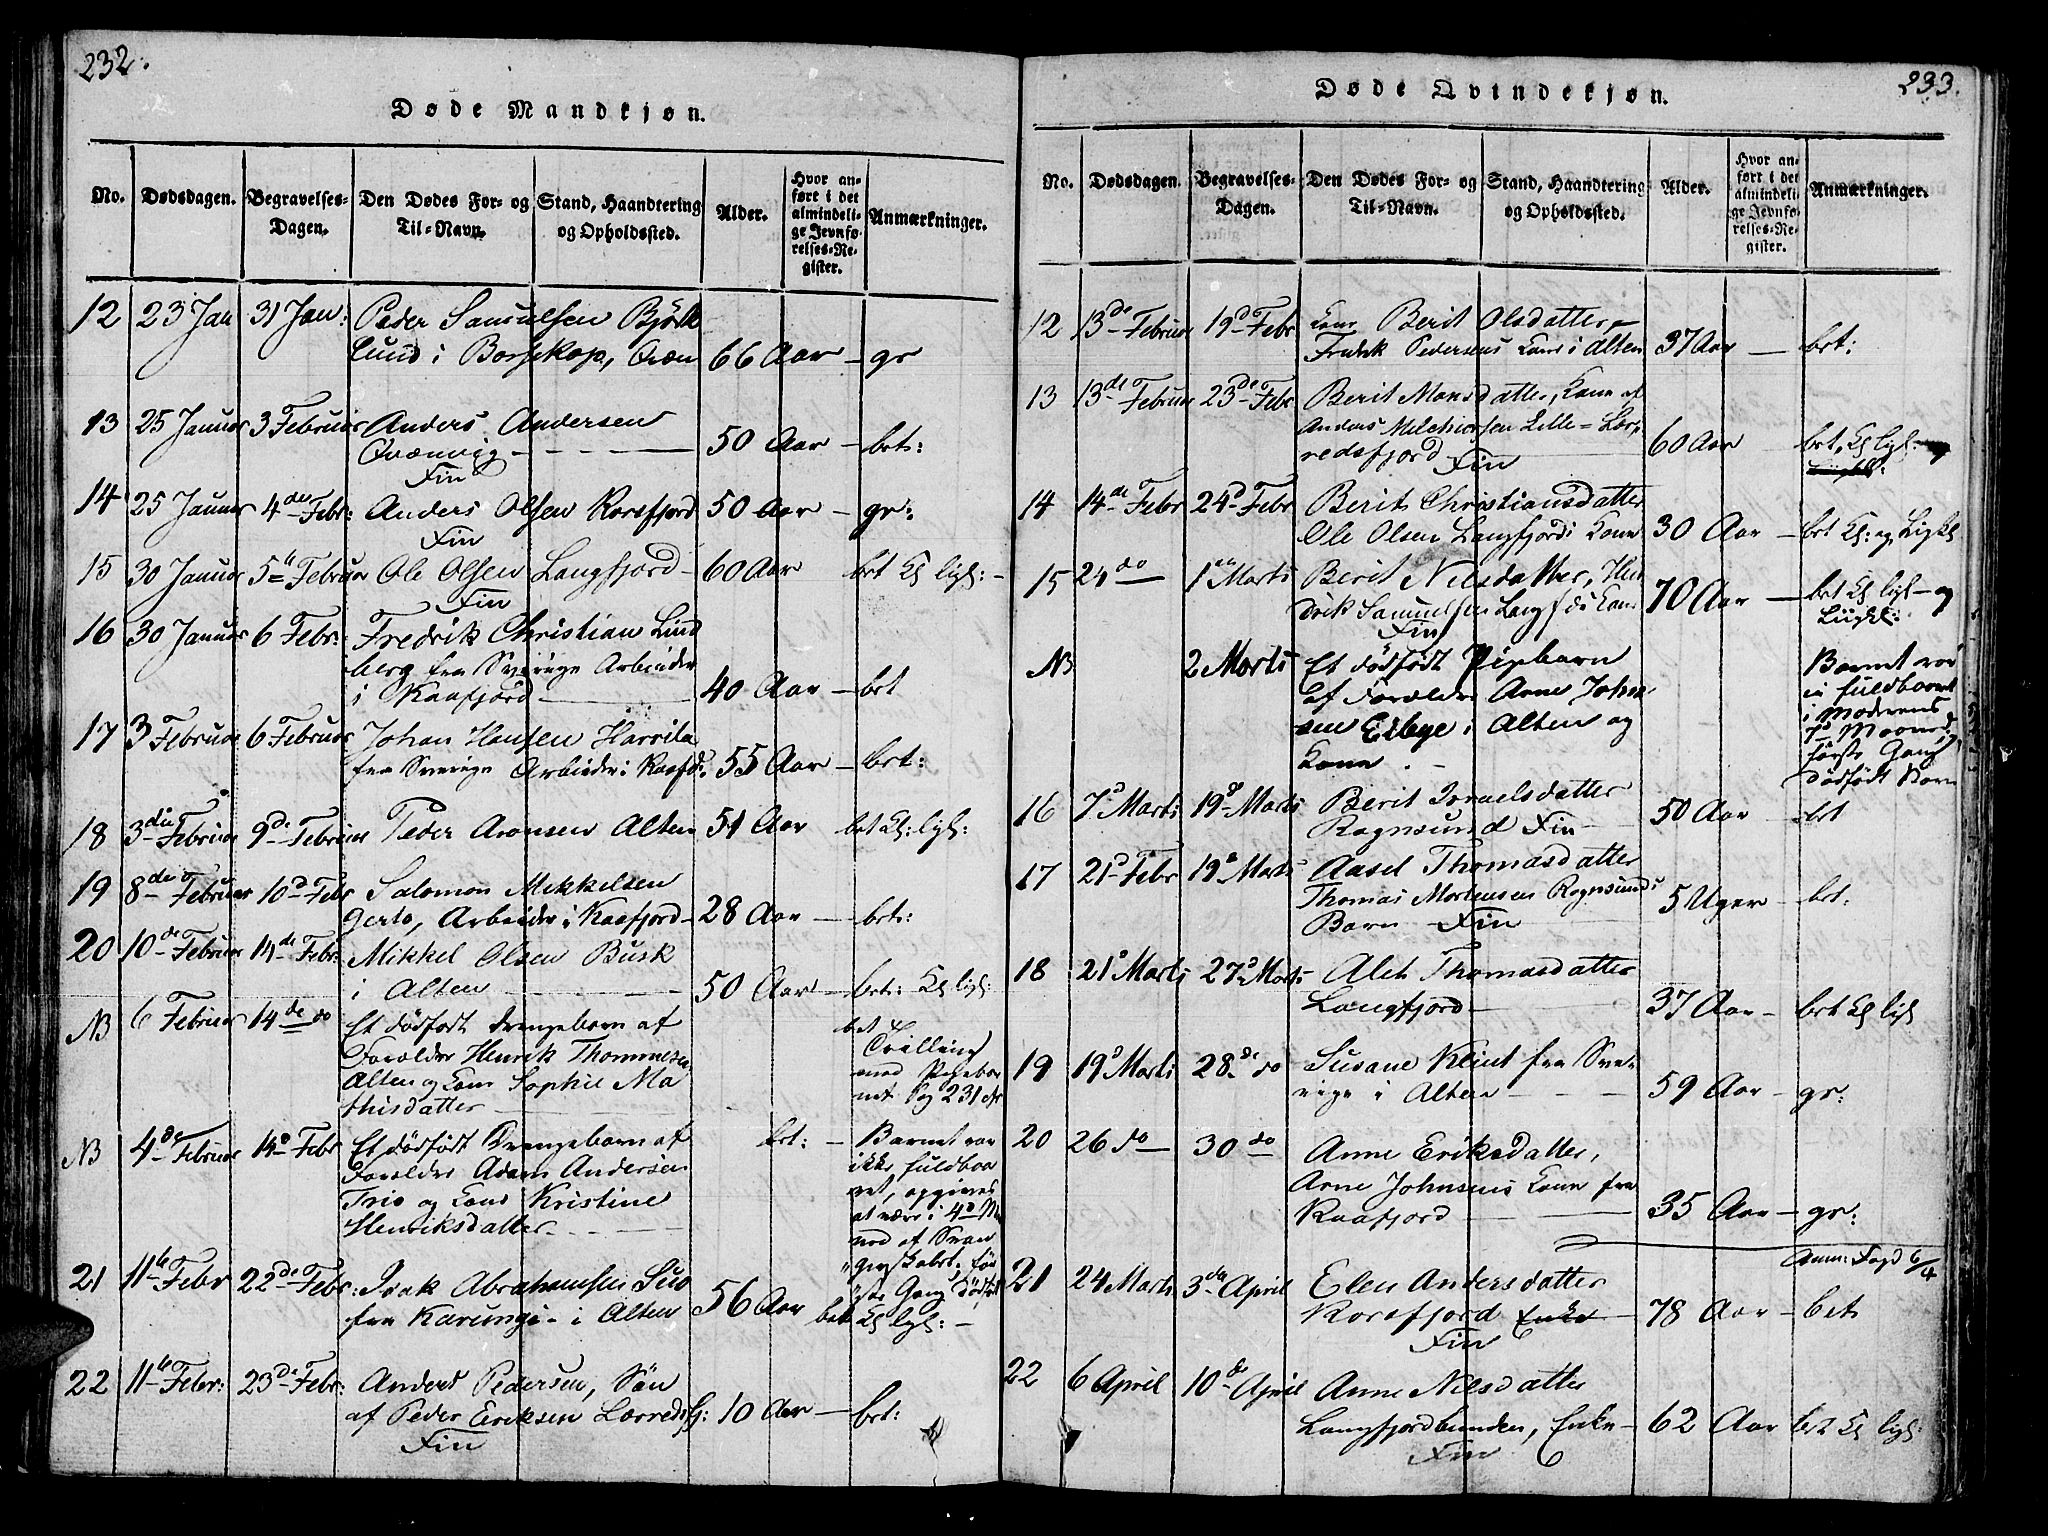 232.
Døde Mandkjøn.
No.
Dødsdagen.
Begravelses-
Dagen.
Den Dødes For- og
Til-Navn.
Stand, Haandtering
og Opholdssted.
Alder.
Hvor an-
ført i det
almindeli-
ge Jevnfø-
relses-Re-
gister.
Anmærkninger.
12 23 Jan 31 Jan: Peder Samuelsen Bjørk
lund i Bossekop, Qvæn 66 Aar - gr
13 25 Januar 3 Februar Anders Andersen
Qvænvig - 50 Aar - bet:
Fin
14 25 Januar 4de Febr: Anders Olsen Korsfjord 50 Aar - gr:
Fin
15 30 Januar 5te Februar Ole Olsen Langfjord - 60 Aar bet Kl ligl: -
Fin
16 30 Januar 6 Febr: Fredrik Christian Lind
berg fra Sverige Arbeider
i Kaafjord 40 Aar - bet
17 3 Februar 6 Februar Johan Hansen Harrila
fra Sverige Arbeider i Kaafd. 55 Aar - bet:
18 3die Februar 9de Februar Peder Aronsen Alten 51 Aar bet Kl: ligl:
19 8de Februar 10d Febr Salomon Mikkelsen
Gerto, Arbeider i Kaafjord - 28 Aar - bet:
20 10de Februar 14de Febr: Mikkel Olsen Busk
i Alten 50 Aar - bet: Kl ligl:
NB 6 Februar 14de do Et dødfødt Drengebarn af
Forældre Henrik Thommesen
Alten og Kone Sophie Ma
thisdatter
bet
Tvilling
med Pigebar
net Pag 231
NB 4de Februar 14d Febr Et dødfødt Drengebarn af
Forældre Adam Andersen
Trio og Kone Kristine
Henriksdatter
bet: - Barnet var
ikke fuldbaa
ret, opgives
at være i 4d Ma
ned af Svan
gerskabet, før
ste Gang dødfødt
21 11te Febr 22de Febr: Isak Abrahamsen
fra Karungi - i Alten 56 Aar bet Kl ligl: -
22 11te Febr: 23d Febr: Anders Pedersen, Søn
af Peder Eriksen Lerredsfj: 10 Aar - bet:
Fin
233.
Døde Qvindekjøn.
No.
Dødsdagen.
Begravelses-
Dagen.
Den Dødes For- og
Til-Navn.
Stand, Haandtering
og Opholdssted.
Alder.
Hvor an-
ført i det
almindeli-
ge Jevnfø-
relses-Re-
gister.
Anmærkninger.
12 13de Februar 19d Febr Kone Berit Olsdatter
Fredrik Pedersens Kone i Alten 37 Aar - bet:
13 13de Februar 23de Febr Berit Monsdatter, Kone af
Anders Melchiorsen Lille-Ler,
redsfjord 60 Aar bet, Kl ligl:
Fin
14 14de Febr 24d Febr Berit Christiansdatter
Ole Olsen Langfjords Kone 30 Aar - bet Kl: og Ligkl
15 24 do 1te Marts Berit Nilsdatter, Hen
drik Samuelsen Langfds Kone 70 Aar - bet Kl ligl - og
Liigkl:
Fin
NB 2 Marts Et dødfødt Pigebarn
af Forældre Arne John
sen Eibye i Alten og
Kone.
Barnet var
ei fuldbaaret
i Moderens
7d Maaned,
første Gang
dødfødt Barn
16 7d Marts 19d Marts Berit Israelsdatter
Rognsund Fin 50 Aar - bet
17 21d Febr 19d Marts Aasel Thomasdatter
Thomas Mortensen Rognsunds
Barn - Fin 5 Uger - bet:
18 21d Marts 27d Marts Alet Thomasdatter
Langfjord 37 Aar - bet Kl ligl
19 19d Marts 28de do Susane Keint fra Sve-
rige i Alten 59 Aar - gr:
20 26 do 30 do Anne Eriksdatter,
Arne Johnsens Kone fra
Kaafjord 35 Aar - gr:
Anm: Fogd 6/4
21 24 Marts 3die April Elen Andersdatter
Korsfjord Enke 78 Aar - bet
Fin
22 6 April 10de April Anne Nilsdatter
Langfjordbunden, Enke - 62 Aar bet Kl ligl:
Fin